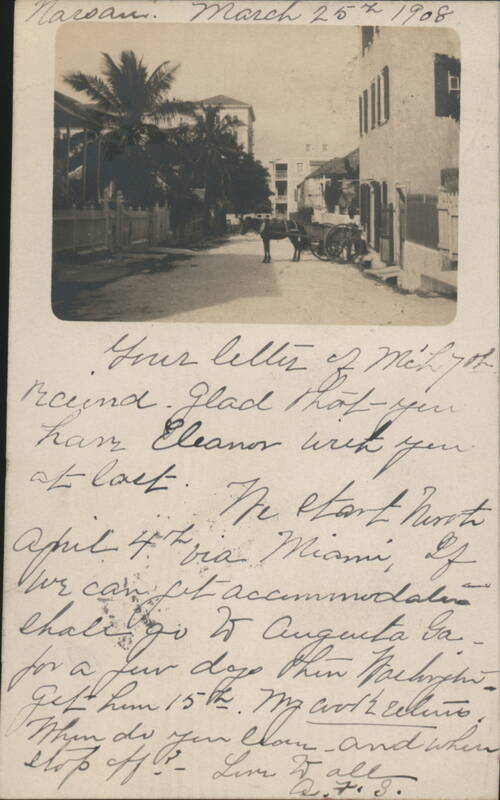 Nassau. March 25th 1908
Your letter of Mch 7th
received. Glad that you
have Eleanor with you
at last.
We start North
April 4th via Miami, If
we can get accommodation
shall go to Augusta Ga.
for a few days then Washington
get home 15th. My cook returns.
When do you leave and where
stop off? Love to all